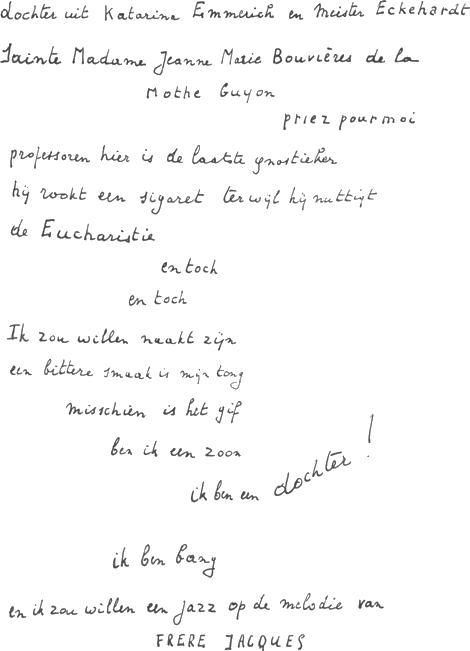 dochter uit Katarina Emmerich en Meister Eckehardt
Sainte Madame Jeanne Marie Bouvières de la
Mothe Guyon
priez pour moi
professoren hier is de laatste gnostieker
hij rookt een sigaret terwijl hij nuttigt
de Eucharistie
en toch
en toch
Ik zou willen naakt zijn
een bittere smaak is mijn tong
misschien is het gif
ben ik een zoon
ik ben een dochter!
ik ben bang
en ik zou willen een jazz op de melodie van
FRERE JACQUES